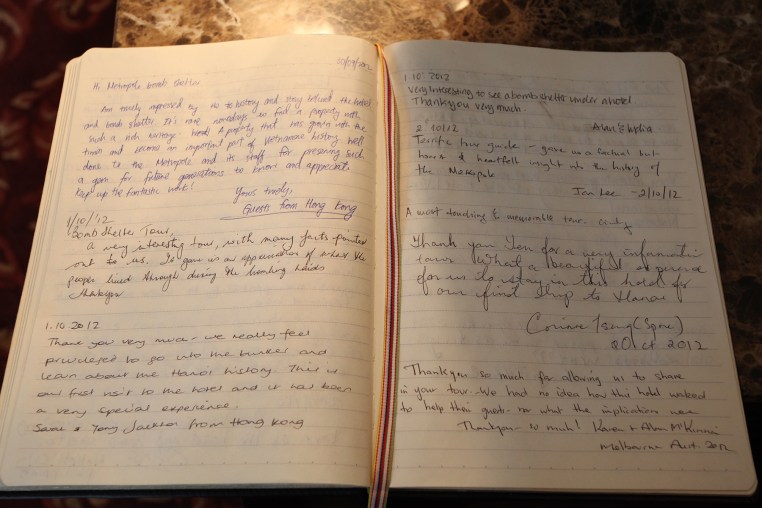 30/09/2012
Hi Metropole bomb shelter
Am truly impressed by the history and story behind the hotel
and bomb shelter. It's rare nowadays to find a property with
such a rich heritage. A property that has grown with the
times and become an important part of Vietnamese history. Well
done to the Metropole and its staff for preserving such
a gem for future generations to honor and appreciate
Keep up the fantastic work!
Yours truly,
Guests from Hong Kong
1/10/12
Bomb Shelter Tour,
a very interesting tour, with many facts pointed
out to us. It gave us an appreciation of what the
people lived through during the bombing raids
Thankyou
1.10.2012
Thank you very much - we really feel
priviledged to go into the bunker and
learn about the Hanoi history. This is
our first visit to the hotel and it has been
a very special experience.
& Tony Jackson from Hong Kong
1.10.2012
Very interesting to see a bomb shelter under a hotel
Thank you very much.
Alan &
2/10/12
Terrific tour guide - gave us a factual but
honest & heartfelt insight into the history of
the Metropole
Ian Lee - 2/10/12
A most touching & memorable tour.
Thank you for a very informative
tour. What a beautiful experience
for us to stay in this hotel for
our first trip to Hanoi
Corinne Tsang (Spore)
2 Oct 2012
Thankyou so much for allowing us to share
in your tour. We had no idea how this hotel worked
to help their guests nor what the implications were
Thankyou so much! Karen & Alan
Melbourne Aust. 2012